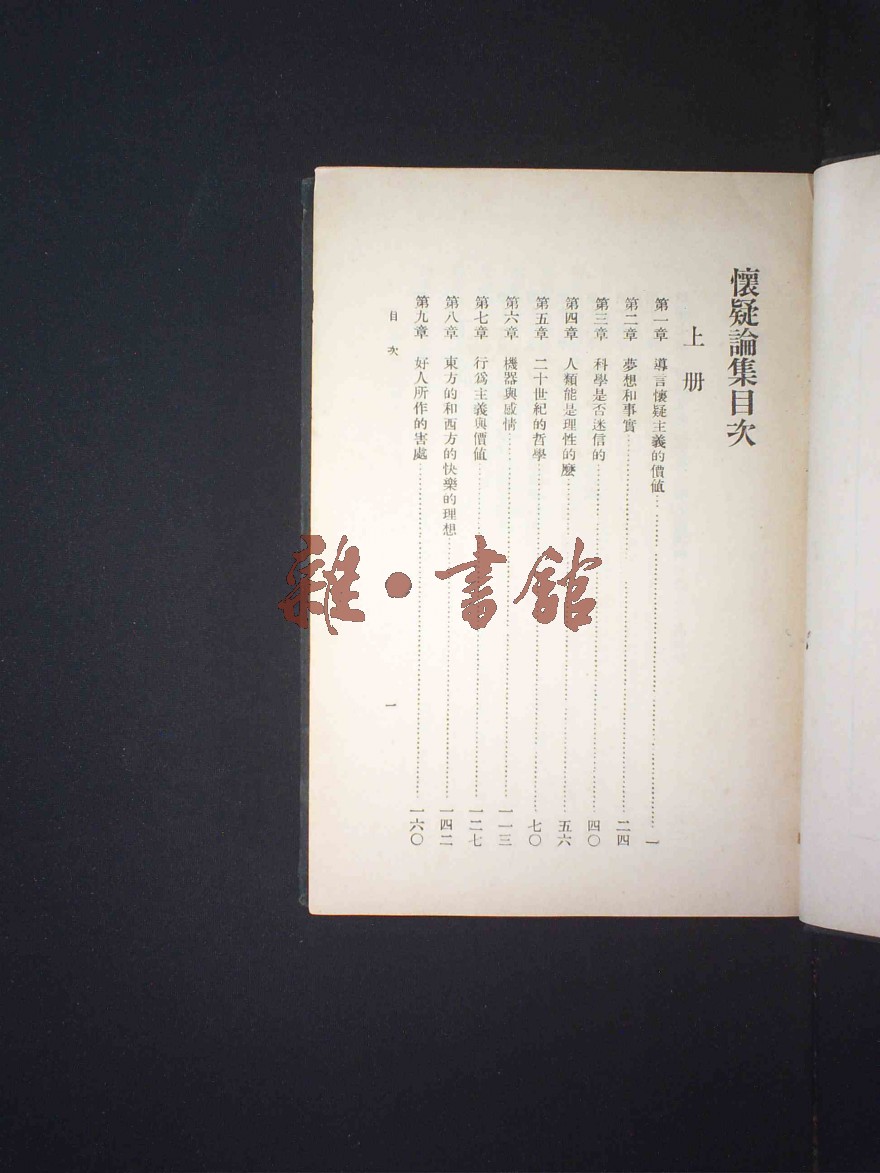 懷疑論集目次
上册
第一章 導言懷疑主義的價値……一
第二章 夢想和事實……二四
第三章 科學是否迷信的……四〇
第四章 人類能是理性的麼……五六
第五章 二十世紀的哲學……七〇
第六章 機器與感情……一一三
第七章 行爲主義與價値……一二七
第八章 東方的和西方的快樂的理想……一四二
第九章 好人所作的害處……一六〇
目次
一
雜·書館